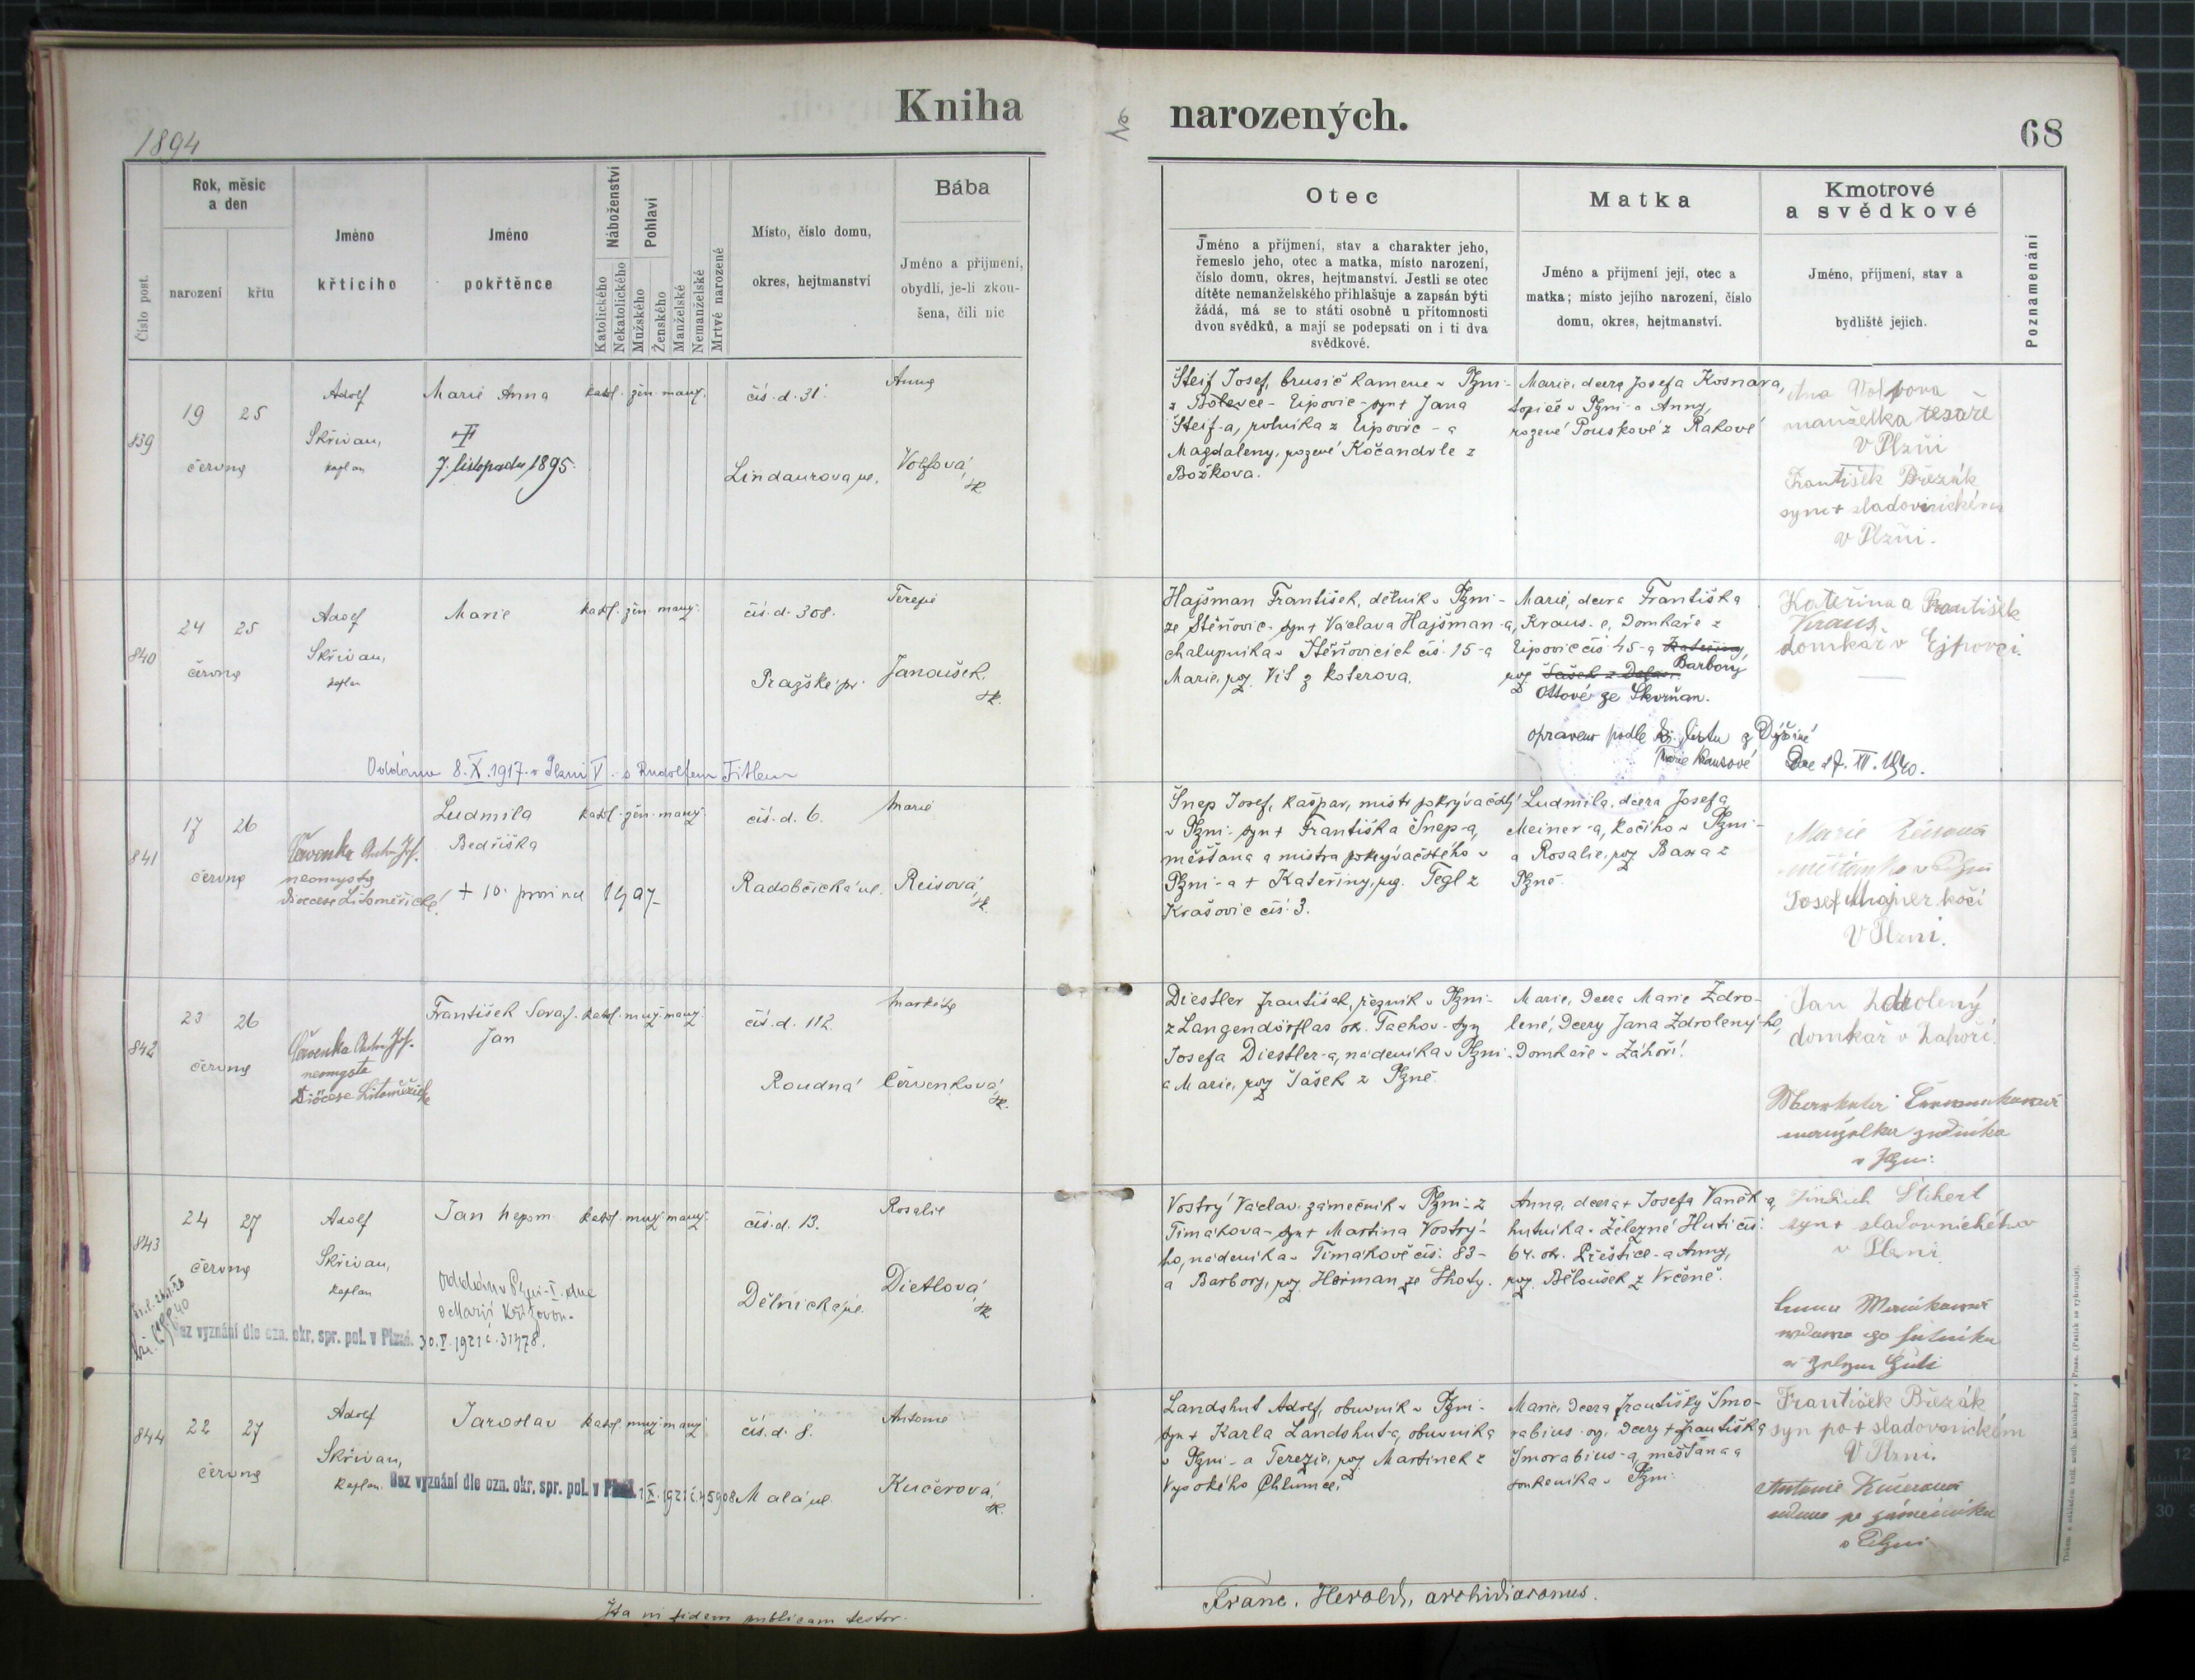 Kniha narozených.
1894
68
Číslo post.
Rok, měsíc
a den
narození
křtu
Jméno
křtícího
Jméno
pokřtěnce
Náboženství
Katolického
Nekatolického
Pohlaví
Mužského
Ženského
Manželské
Nemanželské
Mrtvě narozené
Místo, číslo domu,
okres, hejtmanství
Bába
Jméno a příjmení,
obydlí, je-li zkou-
šena, čili nic
Otec
Jméno a příjmení, stav a charakter jeho,
řemeslo jeho, otec a matka, místo narození,
číslo domu, okres, hejtmanství. Jestli se otec
dítěte nemanželského přihlašuje a zapsán býti
žádá, má se to státi osobně u přítomnosti
dvou svědků, a mají se podepsati on i ti dva
svědkové.
Matka
Jméno a příjmení její, otec a
matka; místo jejího narození, číslo
domu, okres, hejtmanství.
Kmotrové
a svědkové
Jméno, příjmení, stav a
bydliště jejich.
Poznamenání
839
19 25
června
Adolf
Skřivan,
kaplan
Marie Anna
7. listopadu 1895.
katol. žen. manž.
čís. d. 31.
Lindaurova ul.
Anna
Volfová,
zk.
Šteif Josef, brusič kamene v Plzni-
z Bolevce - Ejpovic - syn + Jana
Šteif-a, rolníka z Ejpovic - a
Magdaleny, rozené Kočandrle z
Božkova.
Marie, dcera Josefa Kosnara,
topiče v Plzni - a Anny,
rozené Pouskové z Rakové
manželka tesaře
v Plzni
František Březák
syn + sladovnického
v Plzni.
840
24 25
června
Adolf
Skřivan,
kaplan
Marie
katol. žen. manž.
čís. d. 308.
Pražské př.
Terezie
Janoušek,
zk.
Hajšman František, dělník v Plzni-
ze Štěňovic - syn + Václava Hajšman-a,
chalupníka v Štěňovicích čís. 15 - a
Marie, roz. Vít z Koterova.
Marie, dcera Františka
Kraus-e, domkáře z
Ejpovic čís. 45 - a Kateřiny,
Barbory,
roz. Šašek z
Ottové ze Skvrňan.
opraveno podle kř. listu z Dýšiné
Marie Krausové Dne 27. XII. 1940.
Kateřina a František
Kraus
domkář v Ejpovci.
Oddána 8. X. 1917 v Plzni V. s Rudolfem Fitlem
841
17 26
června
Červenka Anton Jos.
neomysta
Diocese Litoměřické
Ludmila
Bedřiška
+ 10. prosince 1907
katol. žen. manž.
čís. d. 6.
Radobčická ul.
Marie
Reisová,
zk.
Šnep Josef, Kašpar, mistr pokrývačský
v Plzni - syn + Františka Šnep-a,
měšťana a mistra pokrývačského v
Plzni - a + Kateřiny, roz. Tegl z
Krašovic čís. 3.
Ludmila, dcera Josefa
Meiner-a, kočího v Plzni -
a Rosalie, roz. Baxa z
Plzně.
Marie Reisová
měšťanka v Plzni
Josef Majner kočí
V Plzni.
842
23 26
června
Červenka Anton Jos.
neomysta
Diöcese Litoměřické
František Seraf.
Jan
katol. muž. manž.
čís. d. 112.
Roudná
Markéta
Červenková,
zk.
Diestler František, řezník v Plzni-
z Langendörflas ok. Tachov - syn
Josefa Diestler-a, nádeníka v Plzni -
a Marie, roz. Šašek z Plzně.
Marie, dcera Marie Zdro-
lené, dcery Jana Zdrolený-ho,
domkáře v Záhoří.
Jan Zdrolený
domkář v Zahoří.
Markéta Červenková
manželka zedníka
v Plzni.
843
24 27
června
Adolf
Skřivan,
kaplan
Jan Nepom.
katol. muž. manž.
čís. d. 13.
Dělnická ul.
Rosalie
Dietlová,
zk.
Oddán v Plzni-I. dne
s Marií
Bez vyznání dle ozn. okr. spr. pol. v Plzni. 30. V. 1921 č. 31478.
Vostrý Václav, zámečník v Plzni - z
Tímákova - syn + Martina Vostrý-
ho, nádeníka v Tímákově čís. 83 -
a Barbory, roz. Heřman ze Lhoty.
Anna, dcera + Josefa Vaněk-a,
hutníka v Železné Huti čís.
64. ok. Přeštice - a Anny,
roz. Běloušek z Vrčeně.
syn + sladovnického
v Plzni
844
22 27
června
Adolf
Skřivan,
kaplan.
Jaroslav
katol. muž. manž.
čís. d. 8.
Malá ul.
Antonie
Kučerová,
zk.
Bez vyznání dle ozn. okr. spr. pol. v Plzni. 1 X. 1921 č. 45908
Landshut Adolf, obuvník v Plzni -
syn + Karla Landshut-a, obuvníka
v Plzni - a Terezie, roz. Martinek z
Vysokého Chlumce.
Marie, dcera Františky Smo-
rabius-ové, dcery + Františka
Smorabius-a, měšťana a
soukeníka v Plzni.
František Březák
syn po + sladovnickém
V Plzni.
Antonie Kučerová
vdova po zámečníku
v Plzni
Ita in fidem publicam testor.
Franc. Herold, archidiaconus.